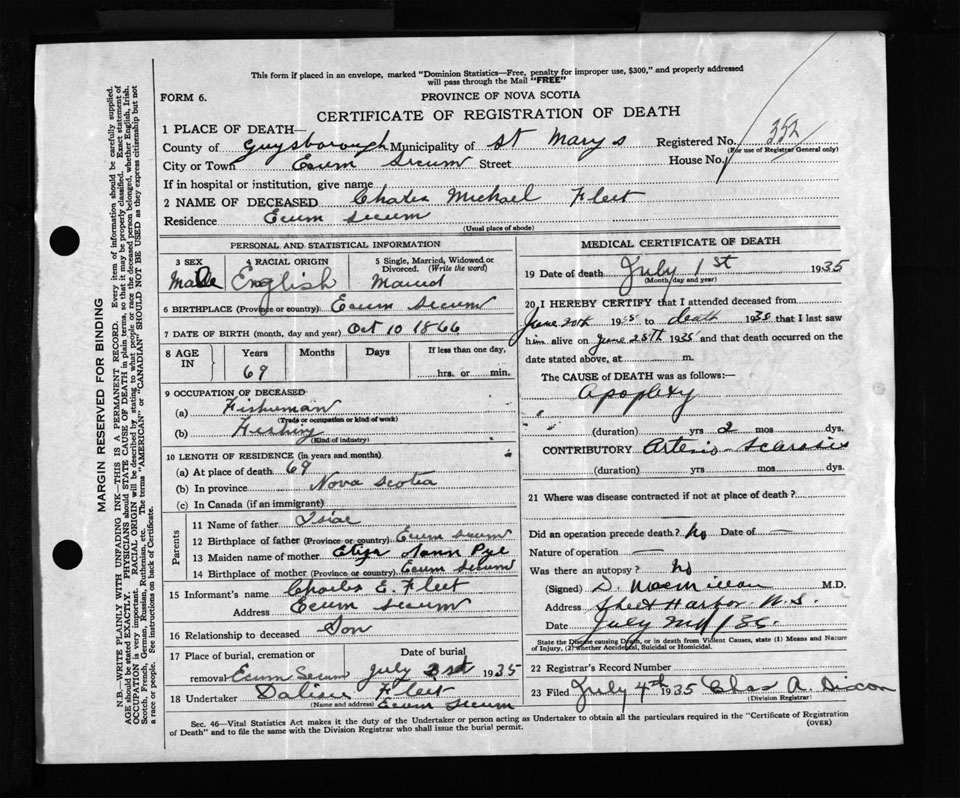 This form if placed in an envelope, marked "Dominion Statistics—Free, penalty for improper use, $300," and properly addressed
will pass through the Mail "FREE"
FORM 6.
PROVINCE OF NOVA SCOTIA
CERTIFICATE OF REGISTRATION OF DEATH
1 PLACE OF DEATH—
County of Guysborough Municipality of St Marys Registered No. 352
(For use of Registrar General only)
City or Town Ecum Secum Street House No.
If in hospital or institution, give name
2 NAME OF DECEASED Charles Michael Fleet
Residence Ecum Secum
(Usual place of abode)
PERSONAL AND STATISTICAL INFORMATION
3 SEX 4 RACIAL ORIGIN 5 Single, Married, Widowed or
Divorced. (Write the word)
Male English
6 BIRTHPLACE (Province or country) Ecum Secum
7 DATE OF BIRTH (month, day and year) Oct 10 1866
8 AGE IN Years Months Days If less than one day,
69 hrs. or min.
9 OCCUPATION OF DECEASED
(a) Fisherman
(Trade or occupation or kind of work)
(b) Fishing
(Kind of industry)
10 LENGTH OF RESIDENCE (in years and months)
(a) At place of death 69
(b) In province Nova Scotia
(c) In Canada (if an immigrant)
Parents
11 Name of father
12 Birthplace of father (Province or country) Ecum Secum
13 Maiden name of mother Eliza Nann Pye
14 Birthplace of mother (Province or country) Ecum Secum
15 Informant's name Charles E. Fleet
Address Ecum Secum
16 Relationship to deceased Son
17 Place of burial, cremation or Date of burial
removal Ecum Secum July 3rd 1935
18 Undertaker Fleet
(Name and address) Ecum Secum
MEDICAL CERTIFICATE OF DEATH
19 Date of death July 1st 1935
(Month, day and year)
20 I HEREBY CERTIFY that I attended deceased from
June 20th 1935 to death 1935 that I last saw
him alive on June 25th 1935 and that death occurred on the
date stated above, at m.
The CAUSE of DEATH was as follows:—
Apoplexy
(duration) yrs 2 mos dys.
CONTRIBUTORY Arterio
(duration) yrs. mos. dys.
21 Where was disease contracted if not at place of death?
Did an operation precede death? No Date of —
Nature of operation —
Was there an autopsy? No
(Signed) D. M.D.
Address Sheet Harbor N.S.
Date July
State the Disease causing Death, or in death from Violent Causes, state (1) Means and Nature
of Injury, (2) whether Accidental, Suicidal or Homicidal.
22 Registrar's Record Number
23 Filed July 4th 1935 A. Dixon
(Division Registrar)
Sec. 46—Vital Statistics Act makes it the duty of the Undertaker or person acting as Undertaker to obtain all the particulars required in the "Certificate of Registration
of Death" and to file the same with the Division Registrar who shall issue the burial permit. (OVER)
MARGIN RESERVED FOR BINDING
N.B.—WRITE PLAINLY WITH UNFADING INK—THIS IS A PERMANENT RECORD. Every item of information should be carefully supplied.
AGE should be stated EXACTLY. PHYSICIANS should STATE CAUSE OF DEATH in plain terms, so that it may be properly classified. Exact statement of
OCCUPATION is very important. RACIAL ORIGIN will be described by stating to what people or race the deceased person belonged, whether English, Irish,
Scotch, French, German, Russian, Ruthenian, etc. The terms "AMERICAN" or "CANADIAN" SHOULD NOT BE USED as they express citizenship but not
a race or people. See instructions on back of Certificate.